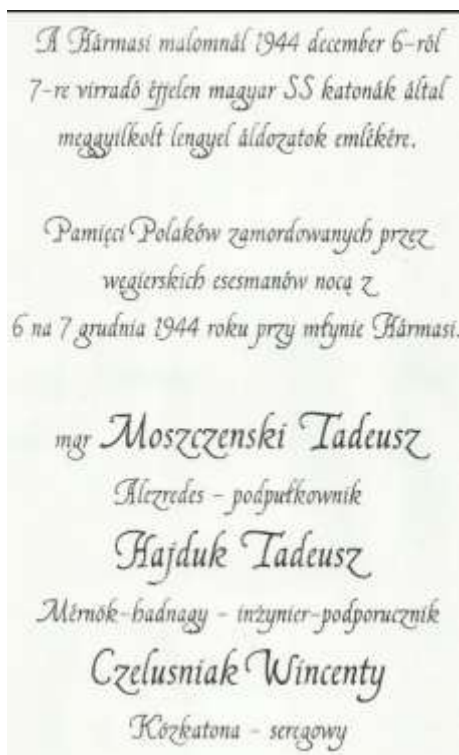 A Hármasi malomnál 1944 december 6-ról
7-re virradó éjjelen magyar SS katonák által
meggyilkolt lengyel áldozatok emlékére.
Pamięci Polaków zamordowanych przez
węgierskich esesmanów nocą z
6 na 7 grudnia 1944 roku przy młynie Hármasi.
mgr Moszczenski Tadeusz
Alezredes - podpułkownik
Hajduk Tadeusz
Mérnök-hadnagy - inżynier-podporucznik
Czelusniak Wincenty
Közkatona - seręgowy